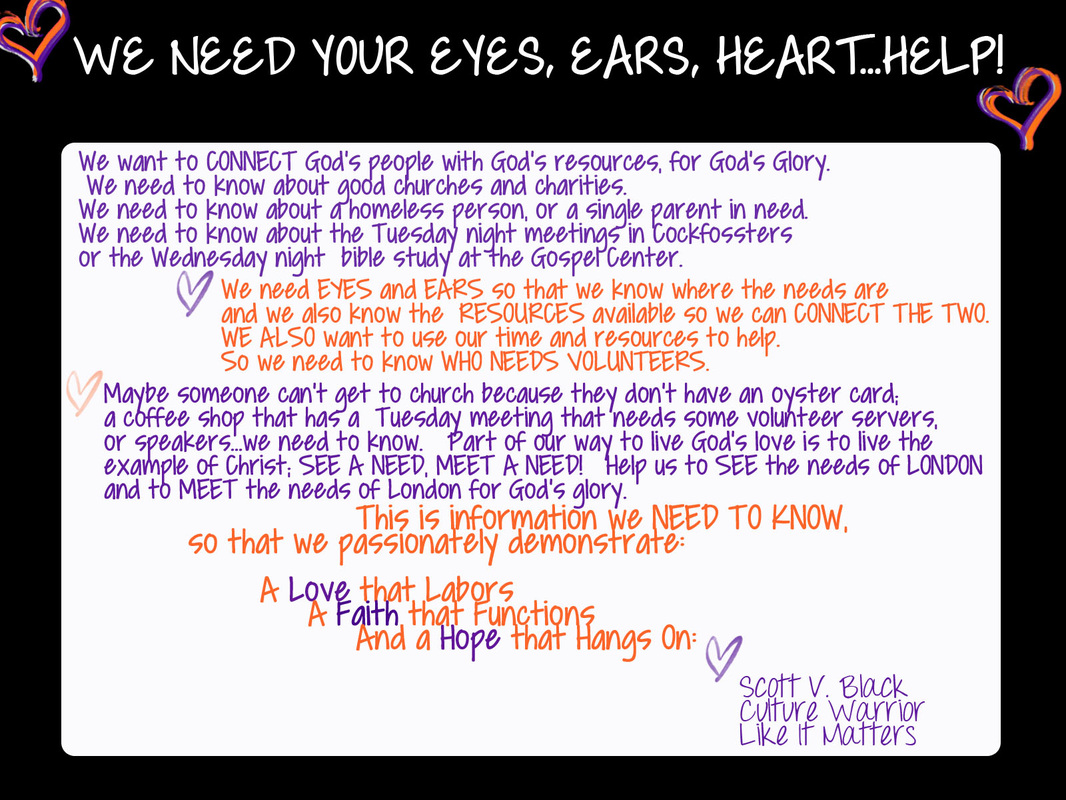 WE NEED YOUR EYES, EARS, HEART...HELP!
We want to CONNECT God's people with God's resources, for God's Glory.
We need to know about good churches and charities.
We need to know about a homeless person, or a single parent in need.
We need to know about the Tuesday night meetings in Cockfossters
or the Wednesday night bible study at the Gospel Center.
We need EYES and EARS so that we know where the needs are
and we also know the RESOURCES available so we can CONNECT THE TWO.
WE ALSO want to use our time and resources to help.
So we need to know WHO NEEDS VOLUNTEERS.
Maybe someone can't get to church because they don't have an oyster card;
a coffee shop that has a Tuesday meeting that needs some volunteer servers,
or speakers...we need to know. Part of our way to live God's love is to live the
example of Christ; SEE A NEED, MEET A NEED! Help us to SEE the needs of LONDON
and to MEET the needs of London for God's glory.
This is information we NEED TO KNOW,
so that we passionately demonstrate:
A Love that Labors
A Faith that Functions
And a Hope that Hangs On:
Scott V. Black
Culture Warrior
Like It Matters